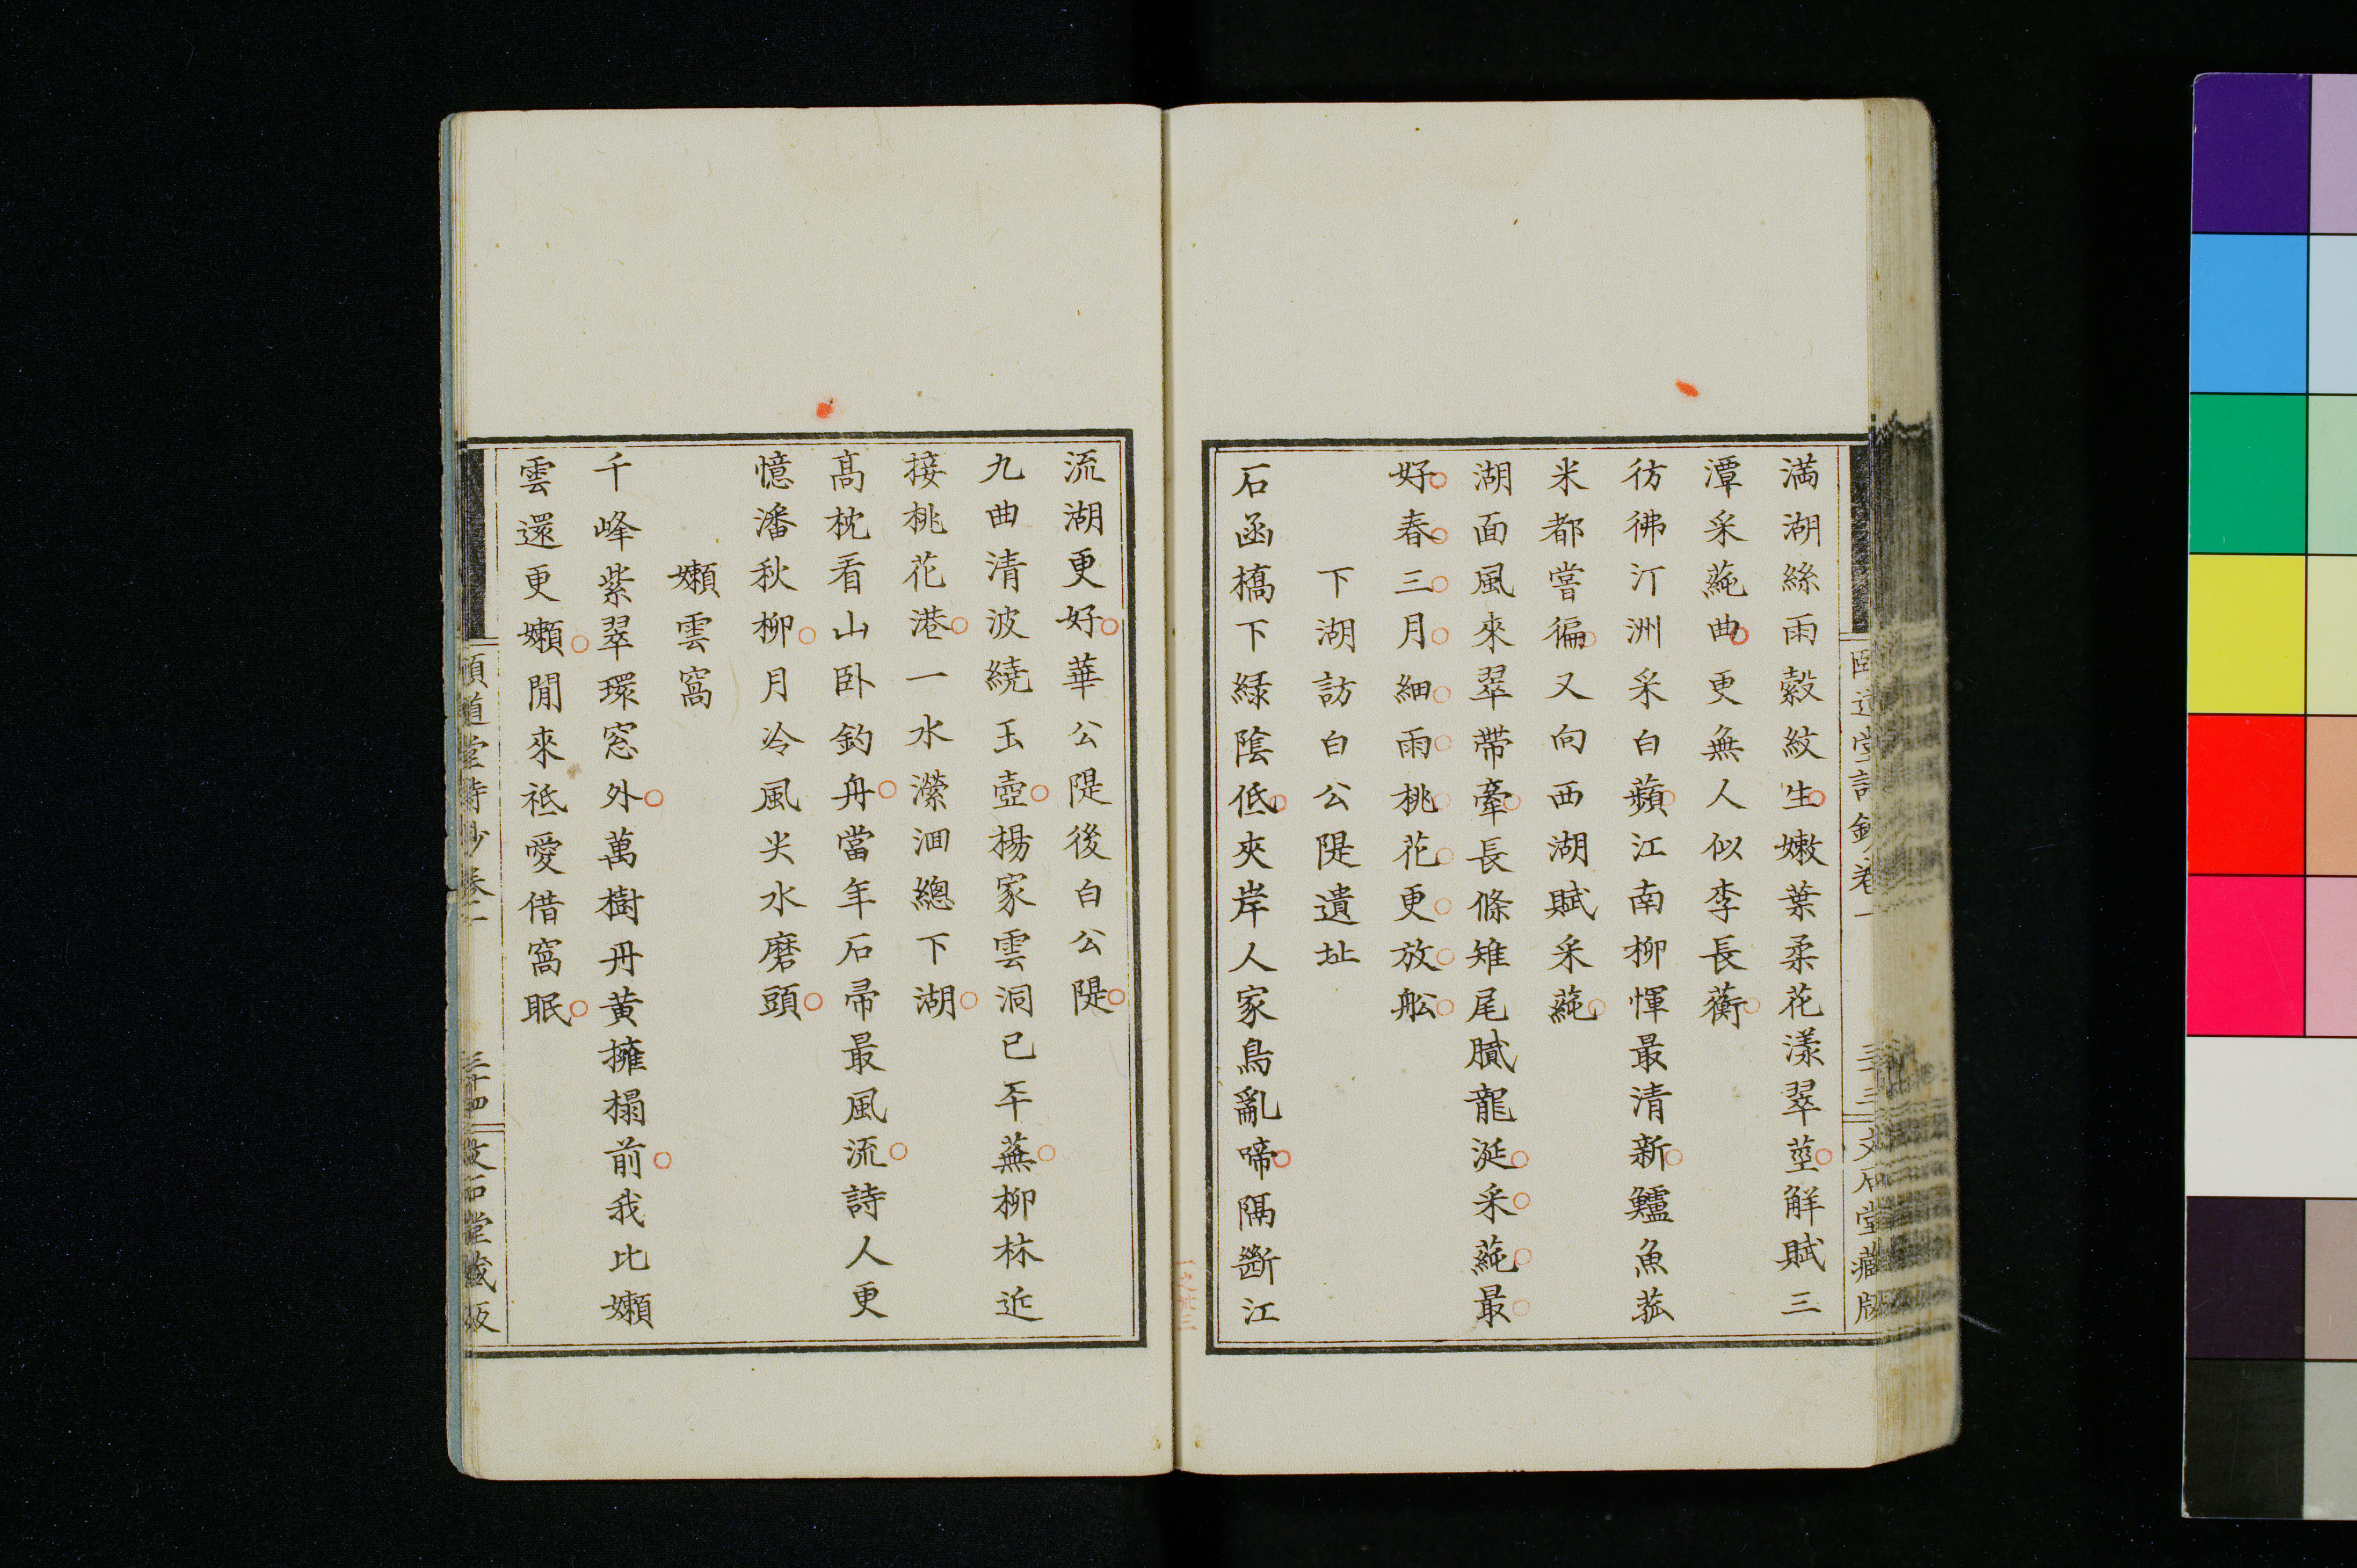 滿湖絲雨縠紋生嫩葉柔花漾翠莖解賦三
潭采蒓曲更無人似李長蘅
彷彿汀洲采白蘋江南柳惲最清新鱸魚菰
米都嘗徧又向西湖賦采蒓
湖面風來翠帶牽長條雉尾膩龍涎采蒓最
好春三月細雨桃花更放船
下湖訪白公隄遺址
石函橋下綠陰低夾岸人家鳥亂啼隔斷江
流湖更好華公隄後白公隄
九曲清波繞玉壺楊家雲洞已平蕪柳林近
接桃花港一水瀠洄總下湖
高枕看山臥釣舟當年石帚最風流詩人更
憶潘秋柳月冷風尖水磨頭
嬾雲窩
千峰紫翠環窓外萬樹丹黃擁榻前我比嬾
雲還更嬾閒來祗愛借窩眠
頤道堂詩鈔卷一
三十四
文石堂藏版